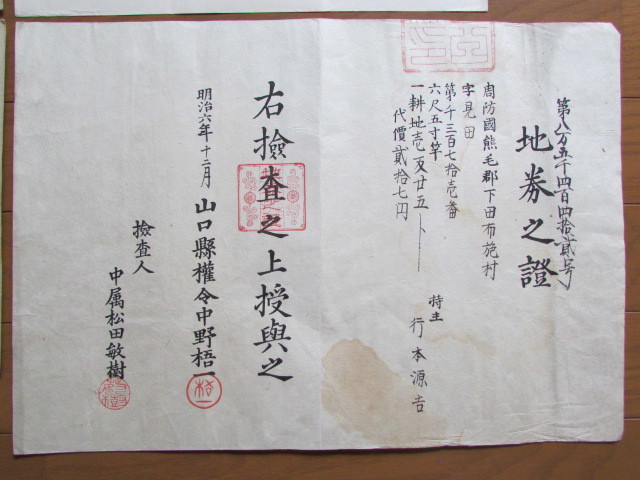 第八万五千四百四拾貳号
地券之證
周防國熊毛郡下田布施村
字見田
第千三百七拾壱番
六尺五寸竿
一耕地壱反廿五卜
代價貳拾七円
持主 行本源吉
右撿査之上授與之
明治六年十二月 山口縣權令中野梧一
撿査人
中属松田敏樹